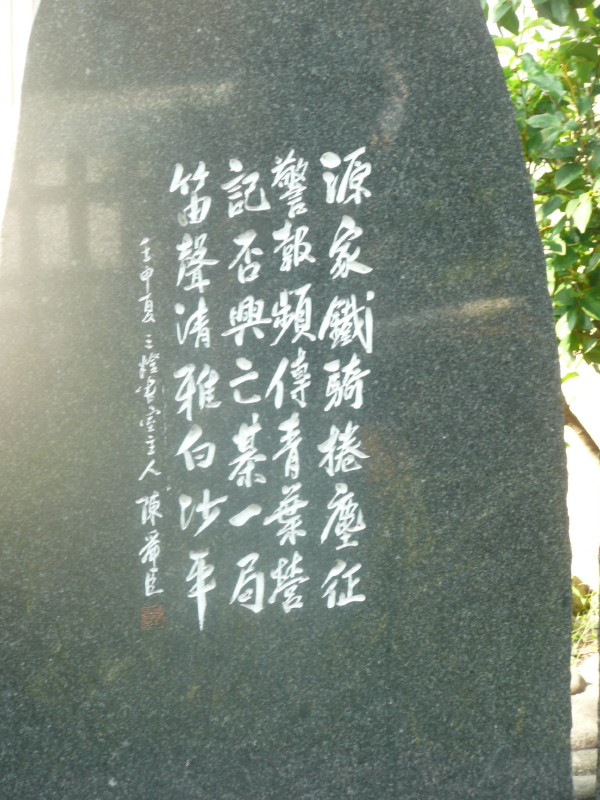 源家鐵騎捲塵征
警報頻傳青葉營
記否興亡棊一局
笛聲清雅白沙平
壬申夏 三燈書室主人 陳舜臣